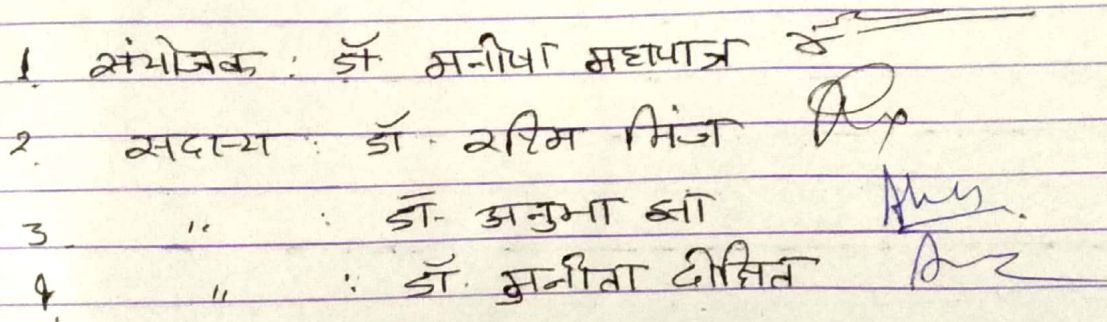 1 संयोजक : डॉ मनीषा महापात्र
2. सदस्य : डॉ. रश्मि मिंज
3. " : डॉ. अनुभा झा
4. " : डॉ. सुनीता दीक्षित